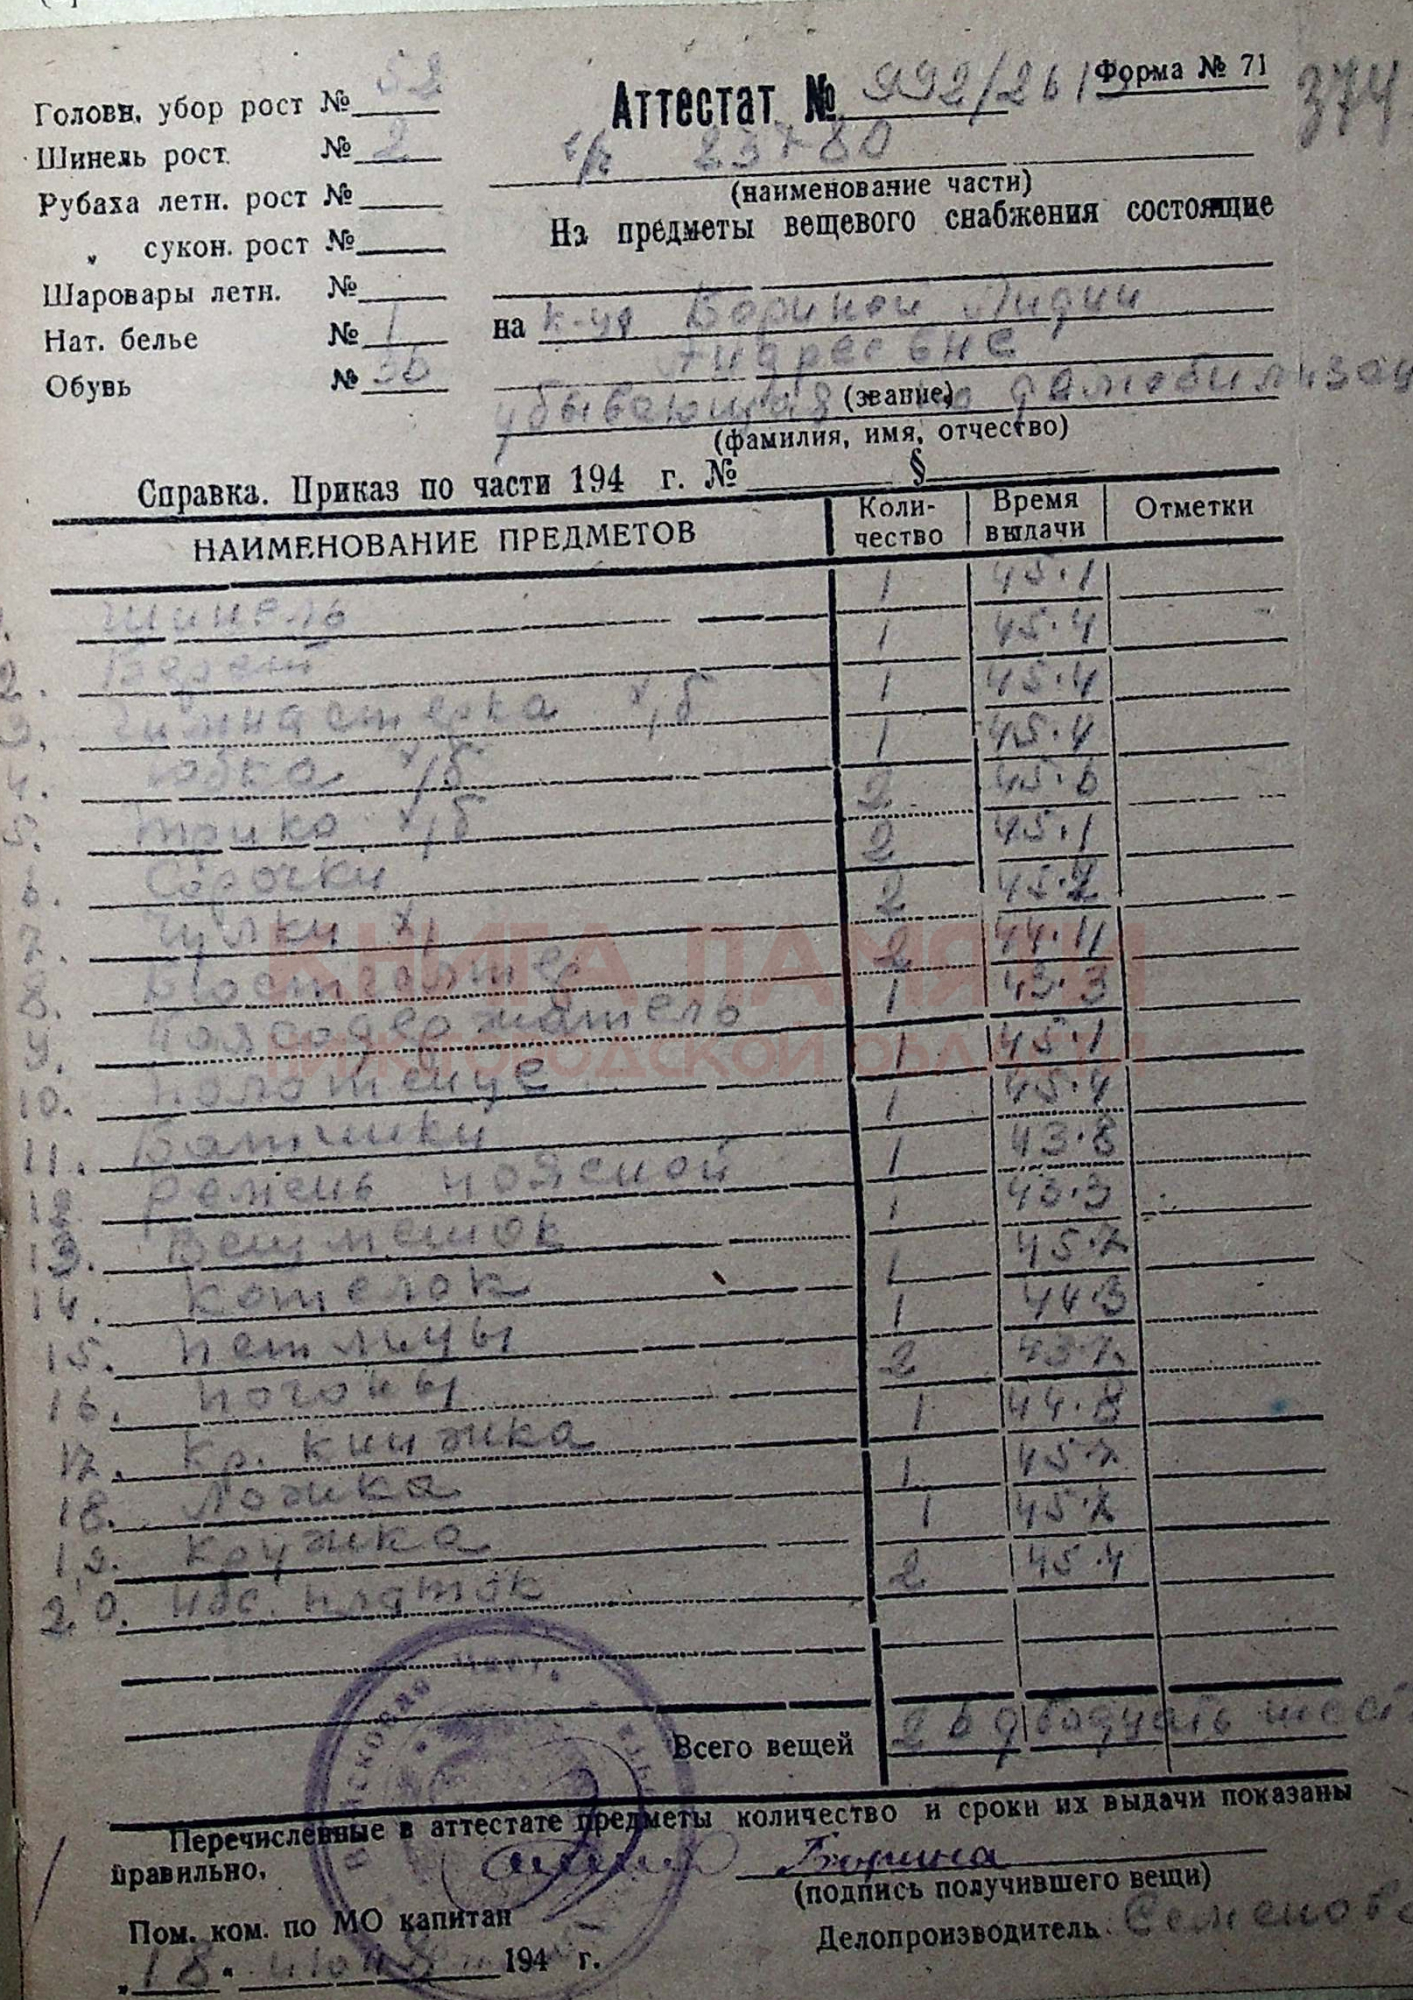 Форма № 71
374
Головн. убор рост № 52
Аттестат № 992/261
Шинель рост № 2
ч/п 23780
(наименование части)
Рубаха летн. рост №
На предметы вещевого снабжения состоящие
„ сукон. рост №
Шаровары летн. №
на к-ца Бориной Лидии
Нат. белье № 1
Андреевне
Обувь № 36
(звание)
убывающая по демобилизац
(фамилия, имя, отчество)
Справка. Приказ по части 194 г. № §
НАИМЕНОВАНИЕ ПРЕДМЕТОВ Коли-чество Время выдачи Отметки
1. Шинель 1 45.1
2. Берет 1 45.4
3. Гимнастерка х/б 1 45.4
4. Юбка х/б 1 45.4
5. Трико х/б 2 45.6
6. Сорочки 2 45.1
7. Чулки х/ 2 45.2
8. Бюстгалтер 2 44.11
9. Поясодержатель 1 43.3
10. Полотенце 1 45.1
11. Ботинки 1 45.4
12. Ремень поясной 1 43.8
13. Вещмешок 1 43.3
14. Котелок 1 45.7
15. Петлицы 1 44.3
16. Погоны 2 43.7
17. Кр. книжка 1 44.8
18. Ложка 1 45.7
19. Кружка 1 45.7
20. Нос. платок 2 45.4
КНИГА ПАМЯТИ
НИЖЕГОРОДСКОЙ ОБЛАСТИ
Всего вещей 26 двадцать шест
Перечисленные в аттестате предметы количество и сроки их выдачи показаны
правильно.
Борина
(подпись получившего вещи)
Пом. ком. по МО капитан
Делопроизводитель Семенова
„18“ июля 194 г.